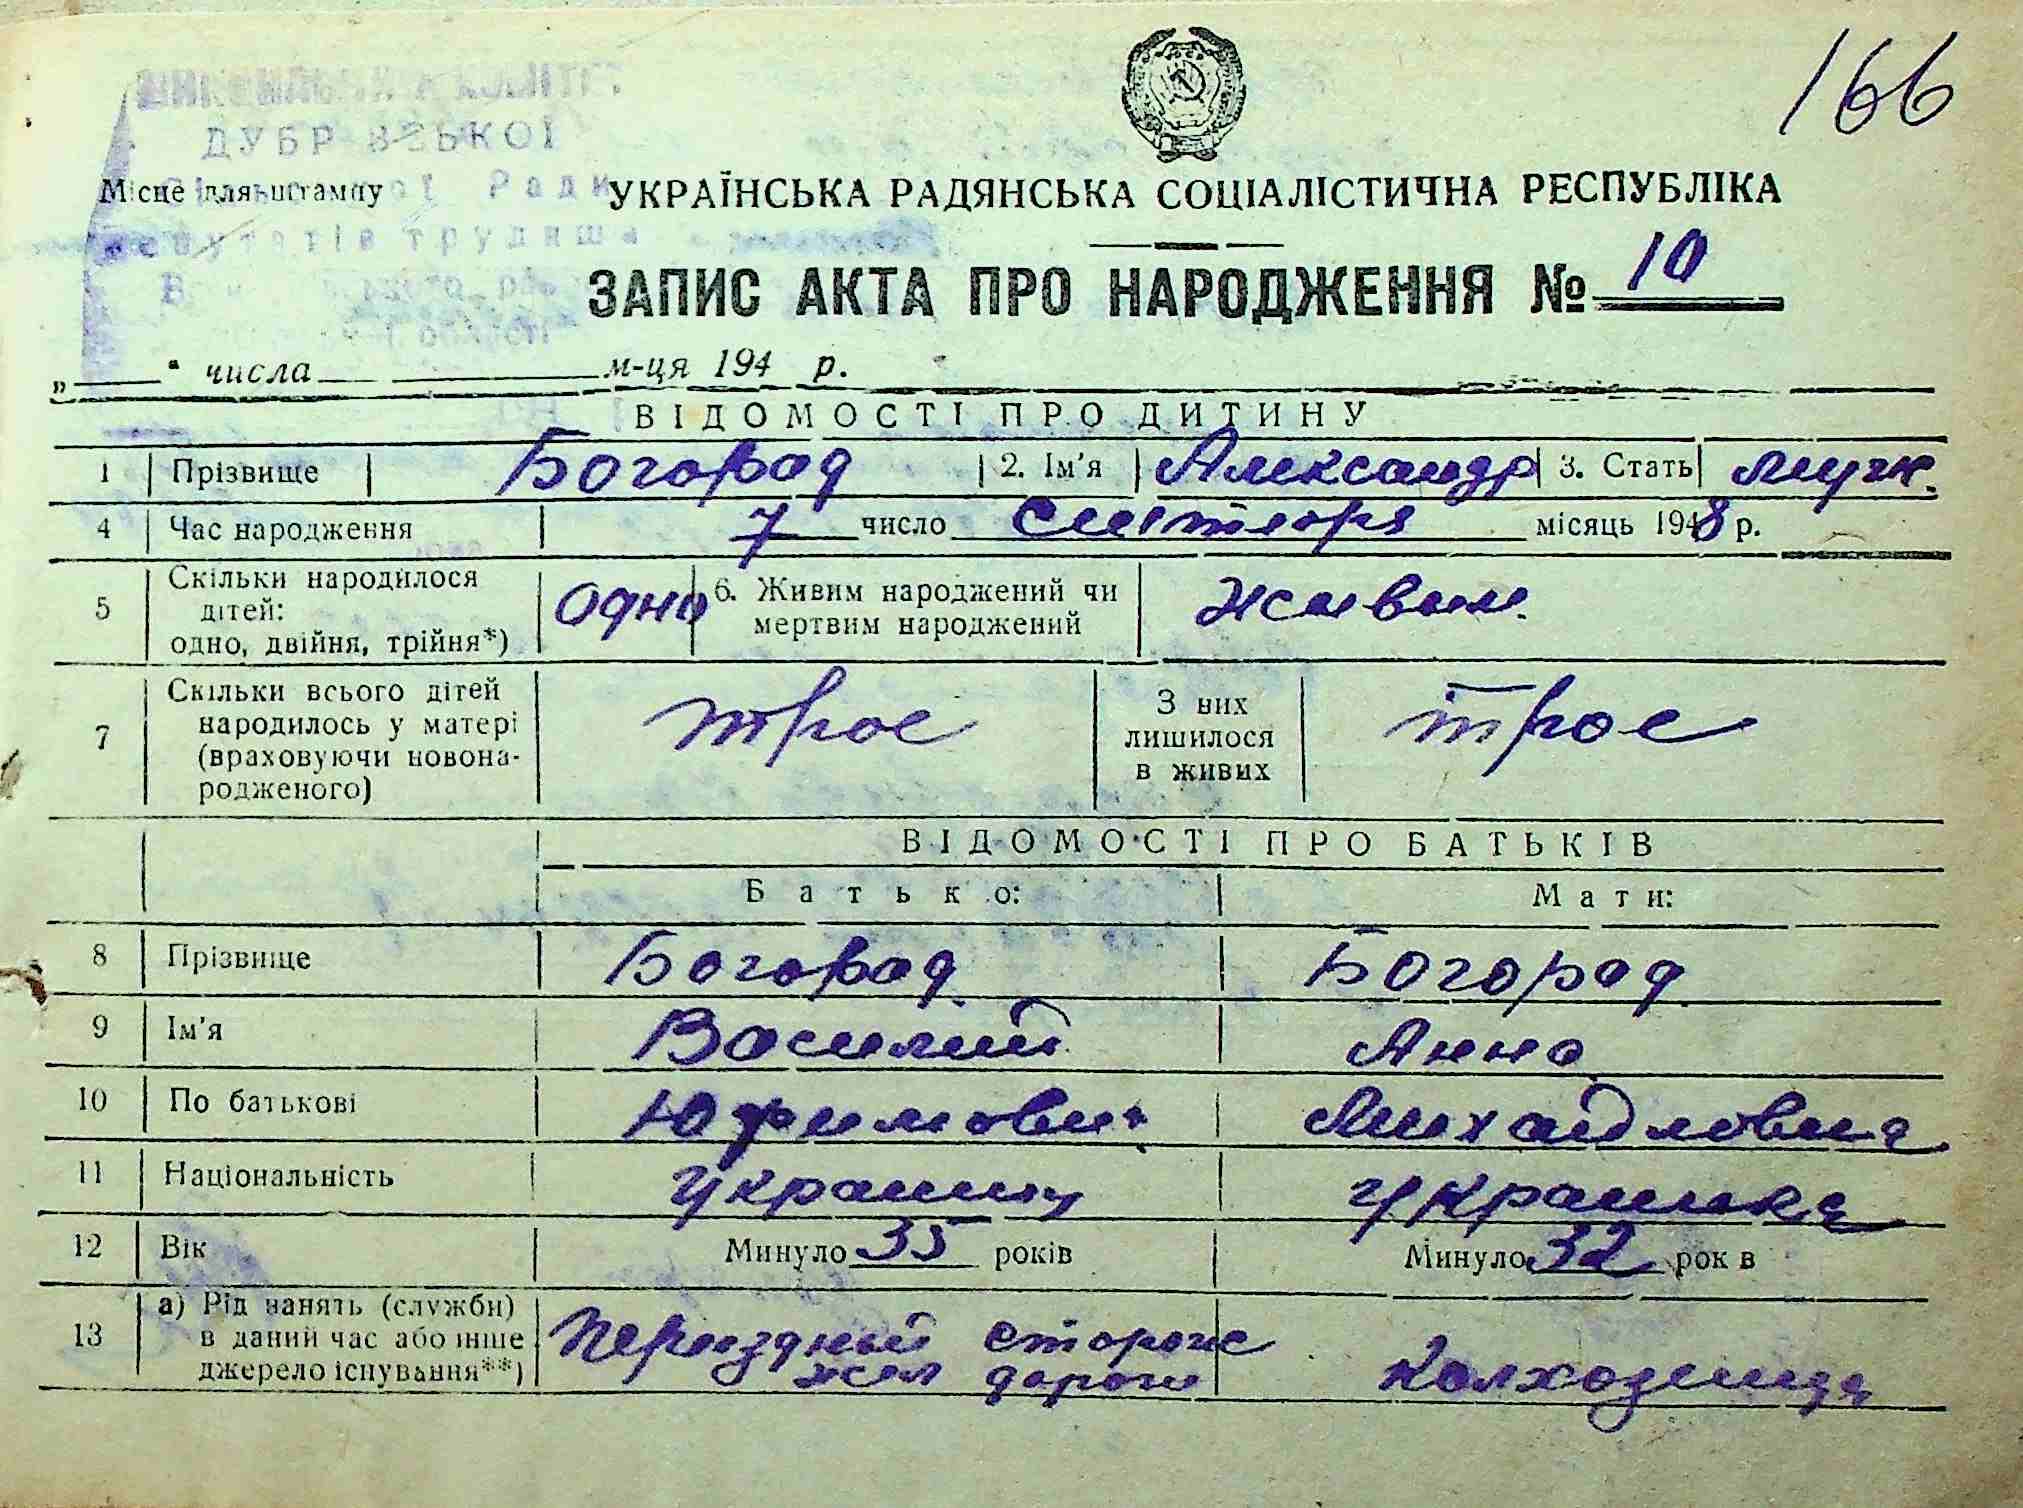 166
ДУБРІВСЬКОЇ
Місце для штампу
Ради
УКРАЇНСЬКА РАДЯНСЬКА СОЦІАЛІСТИЧНА РЕСПУБЛІКА
ЗАПИС АКТА ПРО НАРОДЖЕННЯ № 10
„ “ числа м-ця 194 р.
ВІДОМОСТІ ПРО ДИТИНУ
1 Прізвище Богорад 2. Ім'я Александр 3. Стать муж.
4 Час народження 7 число сентября місяць 1948 р.
5 Скільки народилося дітей: одно, двійня, трійня*) одно 6. Живим народжений чи мертвим народжений живым.
7 Скільки всього дітей народилось у матері (враховуючи новонародженого) трое З них лишилося в живих трое
ВІДОМОСТІ ПРО БАТЬКІВ
Батько: Мати:
8 Прізвище Богорад Богорад
9 Ім'я Василий Анна
10 По батькові Юфимович Михайловна
11 Національність украинец украинка
12 Вік Минуло 35 років Минуло 32 рок в
13 а) Рід занять (служби) в даний час або інше джерело існування**) Переездный сторож жел дороги Колхозница